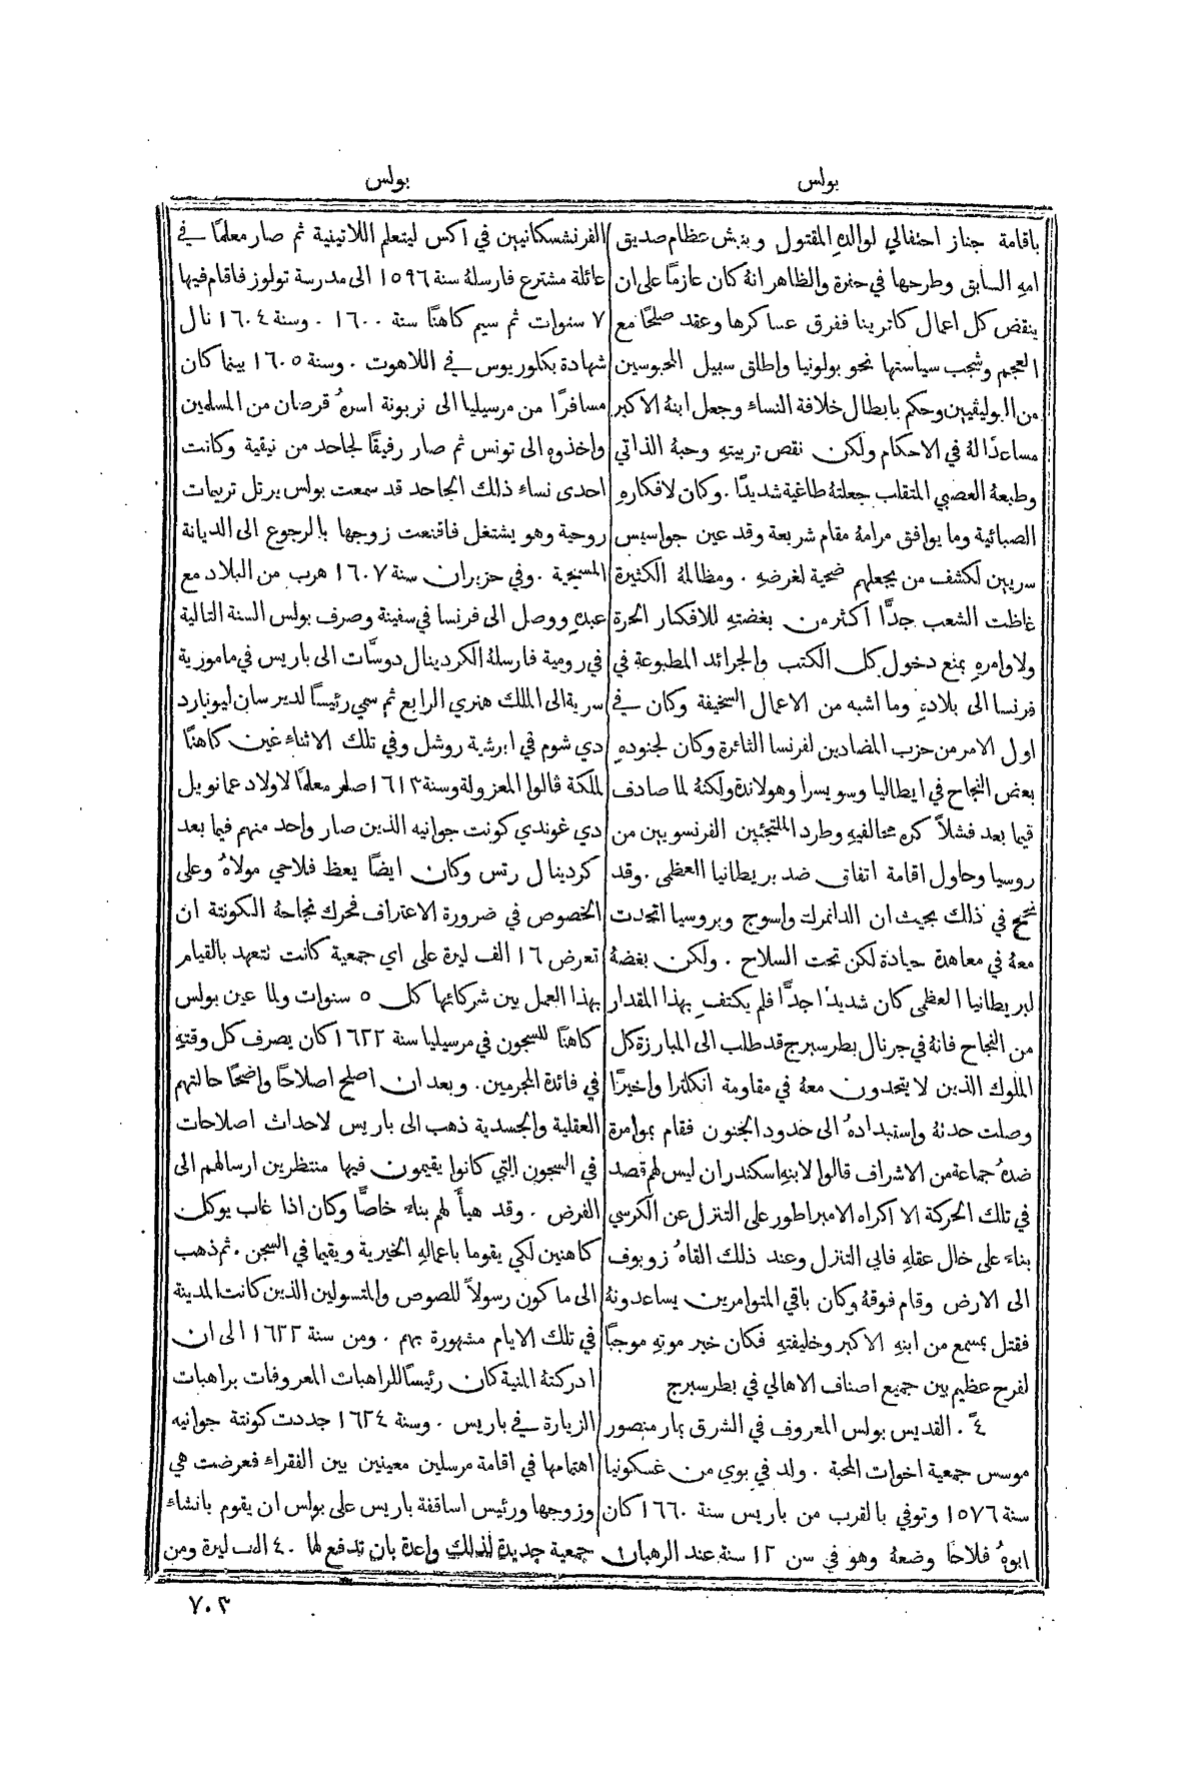 بولس
بولس
باقامة جناز احتفالي لوالدهِ المقتول وبنبش عظام صديق
امهِ السابق وطرحها في حفرة والظاهر انهُ كان عازمًا على ان
ينقض كل اعمال كاترينا ففرق عساكرها وعقد صلحًا مع
العجم وشجب سياستها نحو بولونيا واطلق سبيل المحبوسين
من البوليڤيين وحكم بابطال خلافة النساء وجعل ابنهُ الاكبر
مساعدًا لهُ في الاحكام ولكن نقص تربيتهِ وحبهُ الذاتي
وطبعهُ العصبي المتقلب جعلتهُ طاغية شديدًا. وكان لافكارهِ
الصبائية وما يوافق مرامهُ مقام شريعة وقد عين جواسيس
سريين لكشف من يجعلهم ضحية لغرضهِ. ومظالمهُ الكثيرة
غاظت الشعب جدًّا اكثر من بغضتهِ للافكار الحرة
ولاوامرهِ بمنع دخول كل الكتب والجرائد المطبوعة في
فرنسا الى بلادهِ وما اشبه من الاعمال السخيفة وكان في
اول الامر من حزب المضادين لفرنسا الثائرة وكان لجنودهِ
بعض النجاح في ايطاليا وسويسرا وهولاندة ولكنهُ لما صادف
فيما بعد فشلاً كره محالفيهِ وطرد الملتجئين الفرنسويين من
روسيا وحاول اقامة اتفاق ضد بريطانيا العظمى. وقد
نجح في ذلك بحيث ان الدانمرك واسوج وبروسيا اتحدت
معهُ في معاهدة حيادة لكن تحت السلاح. ولكن بغضهُ
لبريطانيا العظمى كان شديدًا جدًّا فلم يكتفِ بهذا المقدار
من النجاح فانهُ في جرنال بطرسبرج قد طلب الى المبارزة كل
الملوك الذين لا يتحدون معهُ في مقاومة انكلترا واخيرًا
وصلت حدتهُ واستبدادهُ الى حدود الجنون فقام بموامرة
ضدهُ جماعة من الاشراف قالوا لابنهِ اسكندران ليس لهم قصد
في تلك الحركة الا اكراه الامبراطور على التنزل عن الكرسي
بناءً على خلل عقلهِ فابى التنزل وعند ذلك القاهُ زوبوف
الى الارض وقام فوقهُ وكان باقي المتوامرين يساعدونهُ
فقتل بمسمع من ابنهِ الاكبر وخليفتهِ فكان خبر موتهِ موجبًا
لفرح عظيم بين جميع اصناف الاهالي في بطرسبرج
٤ً. القديس بولس المعروف في الشرق بمار منصور
موسس جمعية اخوات المحبة. ولد في بوي من غسكونيا
سنة ١٥٧٦ وتوفي بالقرب من باريس سنة ١٦٦٠ كان
ابوهُ فلاحًا وضعهُ وهو في سن ١٢ سنة عند الرهبان
الفرنشسكانيين في اكس ليتعلم اللاتينية ثم صار معلمًا في
عائلة مشترع فارسلهُ سنة ١٥٩٦ الى مدرسة تولوز فاقام فيها
٧ سنوات ثم سيم كاهنًا سنة ١٦٠٠. وسنة ١٦٠٤ نال
شهادة بكلوريوس في اللاهوت. وسنة ١٦٠٥ بينما كان
مسافرًا من مرسيليا الى نربونة اسرهُ قرصان من المسلمين
واخذوه الى تونس ثم صار رفيقًا لجاحد من نيقية وكانت
احدى نساء ذلك الجاحد قد سمعت بولس يرتل تريمات
روحية وهو يشتغل فاقنعت زوجها بالرجوع الى الديانة
المسيحية. وفي حزيران سنة ١٦٠٧ هرب من البلاد مع
عبدهِ ووصل الى فرنسا في سفينة وصرف بولس السنة التالية
في رومية فارسلهُ الكردينال دوسَّات الى باريس في ماموزية
سرية الى الملك هنري الرابع ثم سمي رئيسًا لدير سان ليونارد
دي شوم في ابرشية روشل وفي تلك الاثناء عين كاهنًا
لملكة ڤالوا المعزولة وسنة ١٦١٣ صار معلمًا لاولاد عمانوئيل
دي غوندي كونت جوانيه الذين صار واحد منهم فيما بعد
كردينال رتس وكان ايضًا يعظ فلاحي مولاهُ وعلى
الخصوص في ضرورة الاعتراف فحرك نجاحهُ الكونتة ان
تعرض ١٦ الف ليرة على اي جمعية كانت تتعهد بالقيام
بهذا العمل بين شركائها كل ٥ سنوات ولما عين بولس
كاهنًا للسجون في مرسيليا سنة ١٦٢٢ كان يصرف كل وقتهِ
في فائدة المجرمين. وبعد ان اصلح اصلاحًا واضحًا حالتهم
العقلية والجسدية ذهب الى باريس لاحداث اصلاحات
في السجون التي كانوا يقيمون فيها منتظرين ارسالهم الى
الفرض. وقد هيأ لهم بناءً خاصًّا وكان اذا غاب يوكل
كاهنين لكي يقوما باعمالهِ الخيرية ويقيما في السجن. ثم ذهب
الى ماكون رسولاً للصوص والمتسولين الذين كانت المدينة
في تلك الايام مشهورة بهم. ومن سنة ١٦٢٢ الى ان
ادركتهُ المنية كان رئيسًا للراهبات المعروفات براهبات
الزيارة في باريس. وسنة ١٦٢٤ جددت كونتة جوانيه
اهتمامها في اقامة مرسلين معينين بين الفقراء فعرضت هي
وزوجها ورئيس اساقفة باريس على بولس ان يقوم بانشاء
جمعية جديدة لذلك واعدة بان تدفع لها ٤٠ الف ليرة ومن
٧٠٣